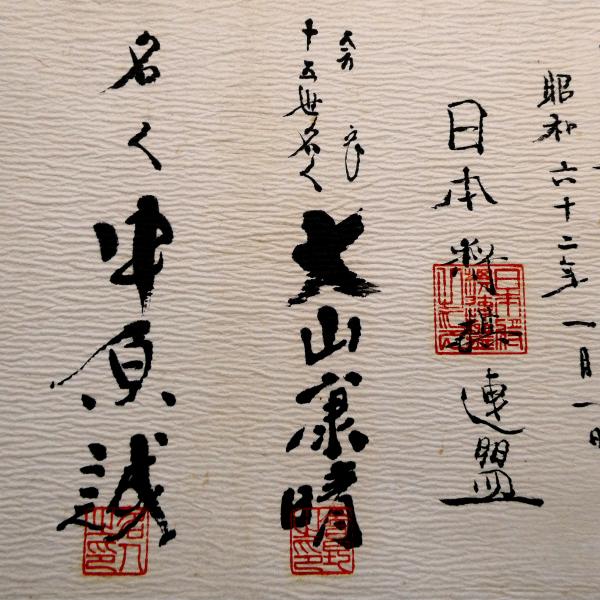 昭和六十二年一月一日
日本将棋連盟
会長
十五世名人
大山康晴
名人
中原誠